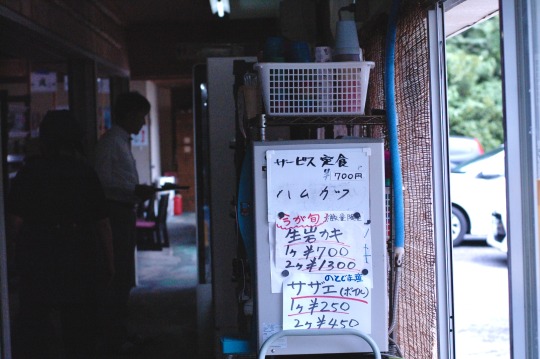 サービス定食
¥700円
ハムカツ
今が旬
生岩カキ
1ヶ¥700
2ヶ¥1300
のとじま産
サザエ(ボイル)
1ヶ¥250
2ヶ¥450